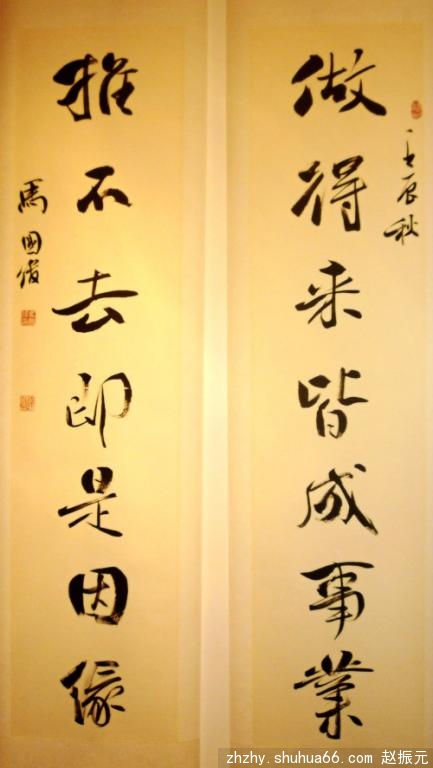 壬辰秋
做得来皆成事業
推不去即是因緣
馬國俊
zhzhy.shuhua66.com 赵振元